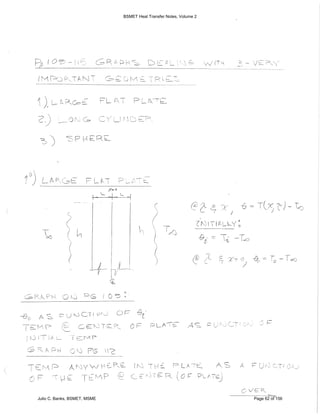 BSMET Heat Transfer Notes, Volume 2
Pg 105-115 GRAPHS DEALING WITH 3-VERY
IMPORTANT GEOMETRIES
1.) LARGE FLAT PLATE
2.) LONG CYLINDER
3.) SPHERE
1°) LARGE FLAT PLATE
L L
@ τ & x, θ = T(x,τ) - T∞
INITIALLY:
T∞ h h T∞
θi = Ti - T∞
@ τ & x=0, θc = Tc - T∞
GRAPH ON PG 105:
θc AS FUNCTION OF θi
TEMP @ CENTER OF PLATE AS FUNCTION OF
INITIAL TEMP
GRAPH ON PG 112
TEMP ANYWHERE IN THE PLATE AS A FUNCTION
OF THE TEMP @ CENTER (OF PLATE)
OVER
Julio C. Banks, BSMET, MSME
Page 52 of 159